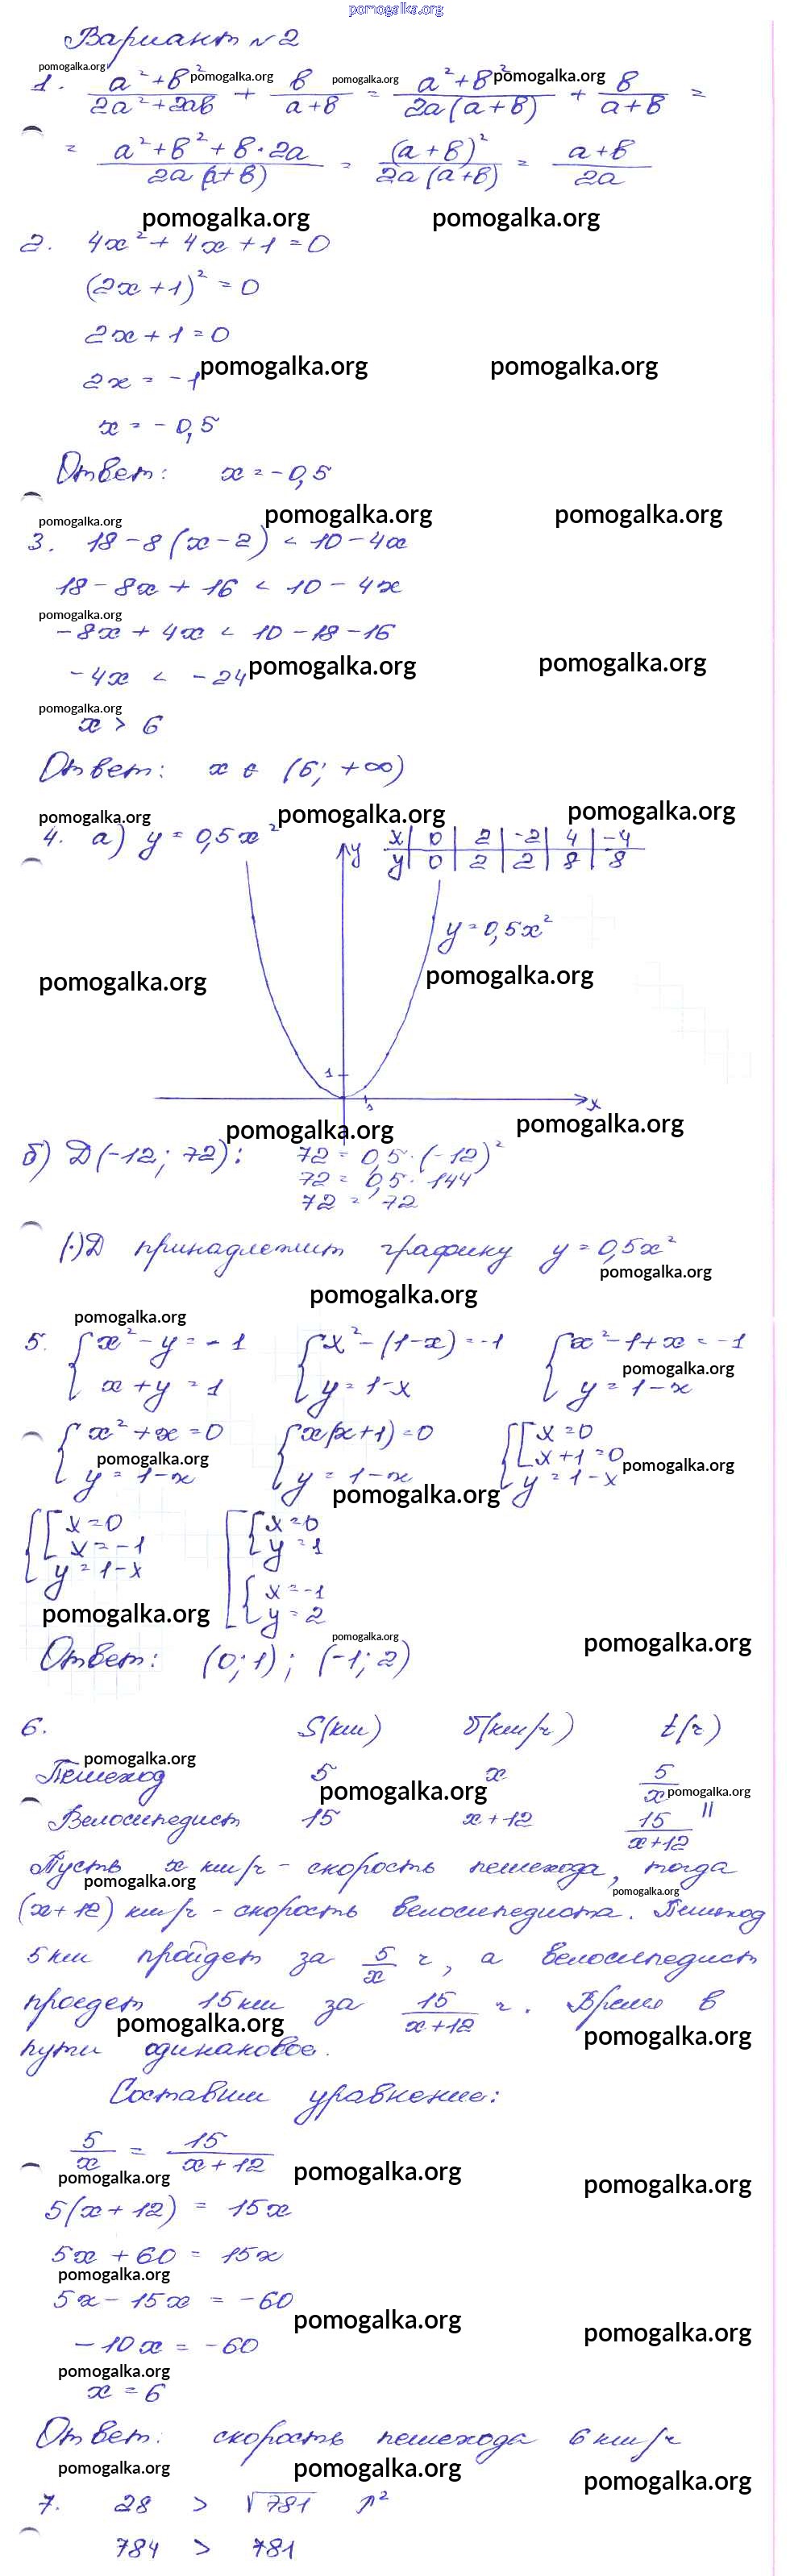 pomogalka.org
Вариант №2
pomogalka.org
1. (a²+b²)/(2a²+2ab) + b/(a+b) = (a²+b²)/(2a(a+b)) + b/(a+b) =
pomogalka.org pomogalka.org pomogalka.org
= (a²+b²+b·2a)/(2a(a+b)) = (a+b)²/(2a(a+b)) = (a+b)/(2a)
pomogalka.org pomogalka.org
2. 4x²+4x+1=0
(2x+1)²=0
2x+1=0
pomogalka.org pomogalka.org
2x=-1
x=-0,5
Ответ: x=-0,5
pomogalka.org pomogalka.org pomogalka.org
3. 18-8(x-2) < 10-4x
18-8x+16 < 10-4x
pomogalka.org
-8x+4x < 10-18-16
-4x < -24
pomogalka.org pomogalka.org
pomogalka.org
x > 6
Ответ: x ∈ (6; +∞)
pomogalka.org pomogalka.org pomogalka.org
4. а) y=0,5x²
y
x | 0 | 2 | -2 | 4 | -4
y | 0 | 2 | 2 | 8 | 8
y=0,5x²
pomogalka.org pomogalka.org
1
1
x
pomogalka.org pomogalka.org
б) D(-12; 72): 72=0,5·(-12)²
72=0,5·144
72=72
(·)D принадлежит графику y=0,5x²
pomogalka.org
pomogalka.org
pomogalka.org
5. {x²-y=-1 {x²-(1-x)=-1 {x²-1+x=-1
pomogalka.org
x+y=1 y=1-x y=1-x
{x²+x=0 {x(x+1)=0 {[x=0
x+1=0
pomogalka.org pomogalka.org
y=1-x y=1-x y=1-x
pomogalka.org
{[x=0 [{x=0
x=-1 y=1
y=1-x
{x=-1
y=2
pomogalka.org
pomogalka.org pomogalka.org
Ответ: (0;1); (-1;2)
6. S(км) V(км/ч) t(ч)
pomogalka.org
Пешеход 5 x 5/x
pomogalka.org pomogalka.org
Велосипедист 15 x+12 15/(x+12) =
Пусть x км/ч - скорость пешехода, тогда
pomogalka.org pomogalka.org
(x+12) км/ч - скорость велосипедиста. Пешеход
5км пройдет за 5/x ч, а велосипедист
проедет 15км за 15/(x+12) ч. Время в
pomogalka.org pomogalka.org
пути одинаковое.
Составим уравнение:
5/x = 15/(x+12)
pomogalka.org pomogalka.org pomogalka.org
5(x+12) = 15x
5x+60 = 15x
pomogalka.org
5x-15x = -60
pomogalka.org pomogalka.org
-10x = -60
pomogalka.org
x=6
Ответ: скорость пешехода 6 км/ч
pomogalka.org pomogalka.org pomogalka.org
7. 28 > √781 ↑²
784 > 781